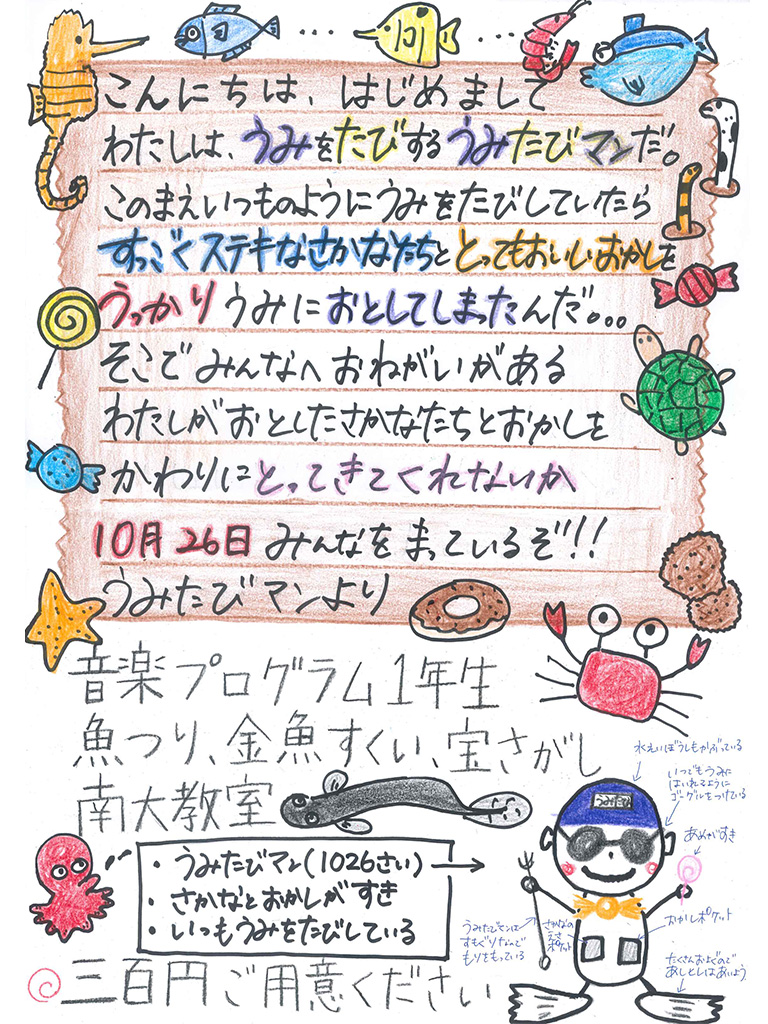 こんにちは、はじめまして
わたしは、うみをたびするうみたびマンだ。
このまえいつものようにうみをたびしていたら
すっごくステキなさかなたちととってもおいしいおかしを
うっかりうみにおとしてしまったんだ。。。
そこでみんなへおねがいがある
わたしがおとしたさかなたちとおかしを
かわりにとってきてくれないか
10月26日みんなをまっているぞ!!
うみたびマンより
音楽プログラム1年生
魚つり、金魚すくい、宝さがし
南大教室
・うみたびマン(1026さい)
・さかなとおかしがすき
・いつもうみをたびしている
三百円ご用意ください
水えいぼうしもかぶっている
いつでもうみに
はいれるように
ゴーグルをつけている
うみたび
あめがすき
おかしポケット
さかなの
えさ
ポケット
うみたびマンは
すもぐりなんで
もりをもっている
たくさんおよぐので
あしとしはあいよう